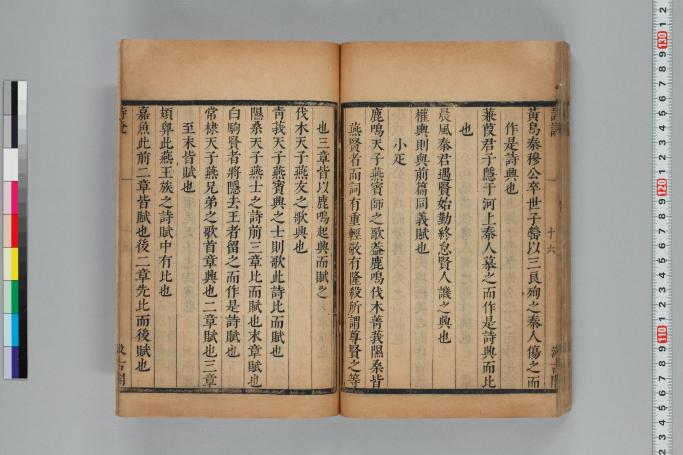 黃鳥秦穆公卒世子罃以三良殉之秦人傷之而
作是詩興也
蒹葭君子隱于河上秦人慕之而作是詩興而比
也
晨風秦君遇賢始勤終怠賢人譏之興也
權輿則與前篇同義賦也
小疋
鹿鳴天子燕賓師之歌葢鹿鳴伐木菁莪隰桑皆
燕賢者而詞有重輕敬有隆殺所謂尊賢之等
也三章皆以鹿鳴起興而賦之
伐木天子燕友之歌興也
菁莪天子燕賓興之士則歌此詩比而賦也
隰桑天子燕士之詩前三章比而賦也末章賦也
白駒賢者將隱去王者留之而作是詩賦也
常棣天子燕兄弟之歌首章興也二章賦也三章
至末皆賦也
頍弁此燕王族之詩賦中有比也
嘉魚此前二章皆賦也後二章先比而後賦也
十六